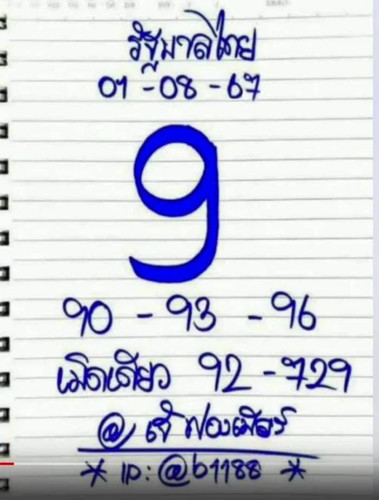 รัฐบาลไทย
01-08-67
9
90 - 93 - 96
เม็ดเดียว 92-729
@ เจ๊ฟองเบียร์
* ID: @b1188 *